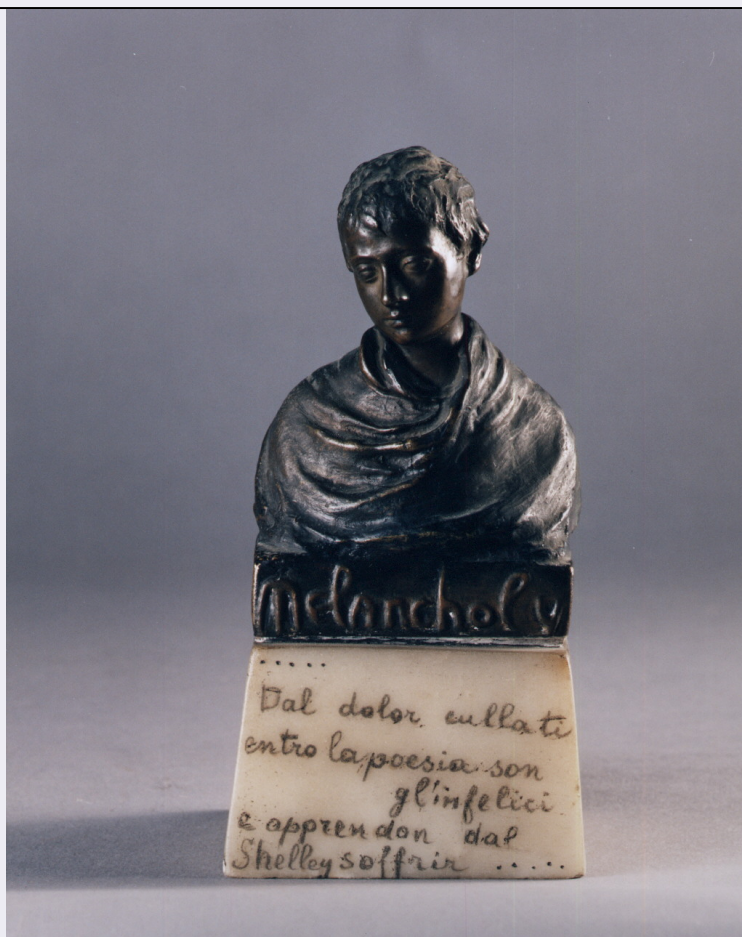 Melancholy
.....
Dal dolor cullati
entro la poesia son
gl'infelici
e apprendon dal
Shelley soffrir .....